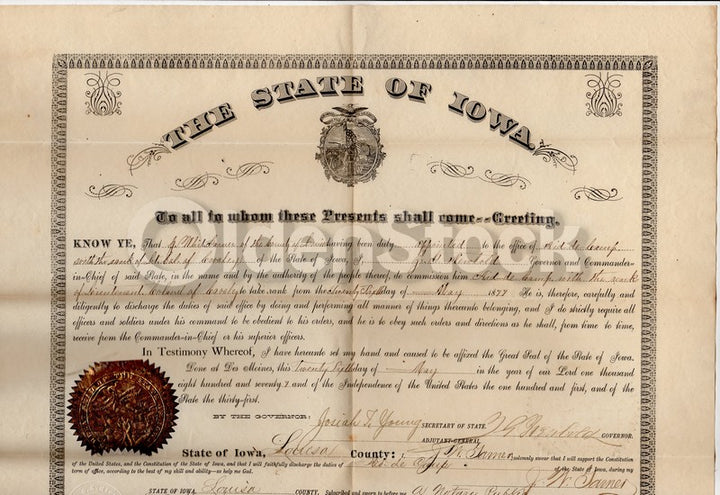 THE STATE OF IOWA.
To all to whom these Presents shall come--Greeting.
KNOW YE, That of the County of having been duly appointed to the office of Aid de Camp
with the rank of of Cavalry of the State of Iowa, I, Governor and Commander-
in-Chief of said State, in the name and by the authority of the people thereof, do commission him Aid de Camp with the rank
of Lieutenant Colonel of Cavalry to take rank from the day of May 1877 He is, therefore, carefully and
diligently to discharge the duties of said office by doing and performing all manner of things thereunto belonging, and I do strictly require all
officers and soldiers under his command to be obedient to his orders, and he is to obey such orders and directions as he shall, from time to time,
receive from the Commander-in-Chief or his superior officers.
In Testimony Whereof, I have hereunto set my hand and caused to be affixed the Great Seal of the State of Iowa.
Done at Des Moines, this day of May in the year of our Lord one thousand
eight hundred and seventy.7 and of the Independence of the United States the one hundred and first, and of the
State the thirty-first.
BY THE GOVERNOR: Josiah T. Young SECRETARY OF STATE. GOVERNOR.
ADJUTANT-GENERAL
State of Iowa, Louisa County: I, do solemnly swear that I will support the Constitution
of the United States, and the Constitution of the State of Iowa, and that I will faithfully discharge the duties of Aid de Camp of the State of Iowa, during my
term of office, according to the best of my skill and ability--so help me God.
STATE OF IOWA, Louisa COUNTY, Subscribed and sworn to before me a Notary Public